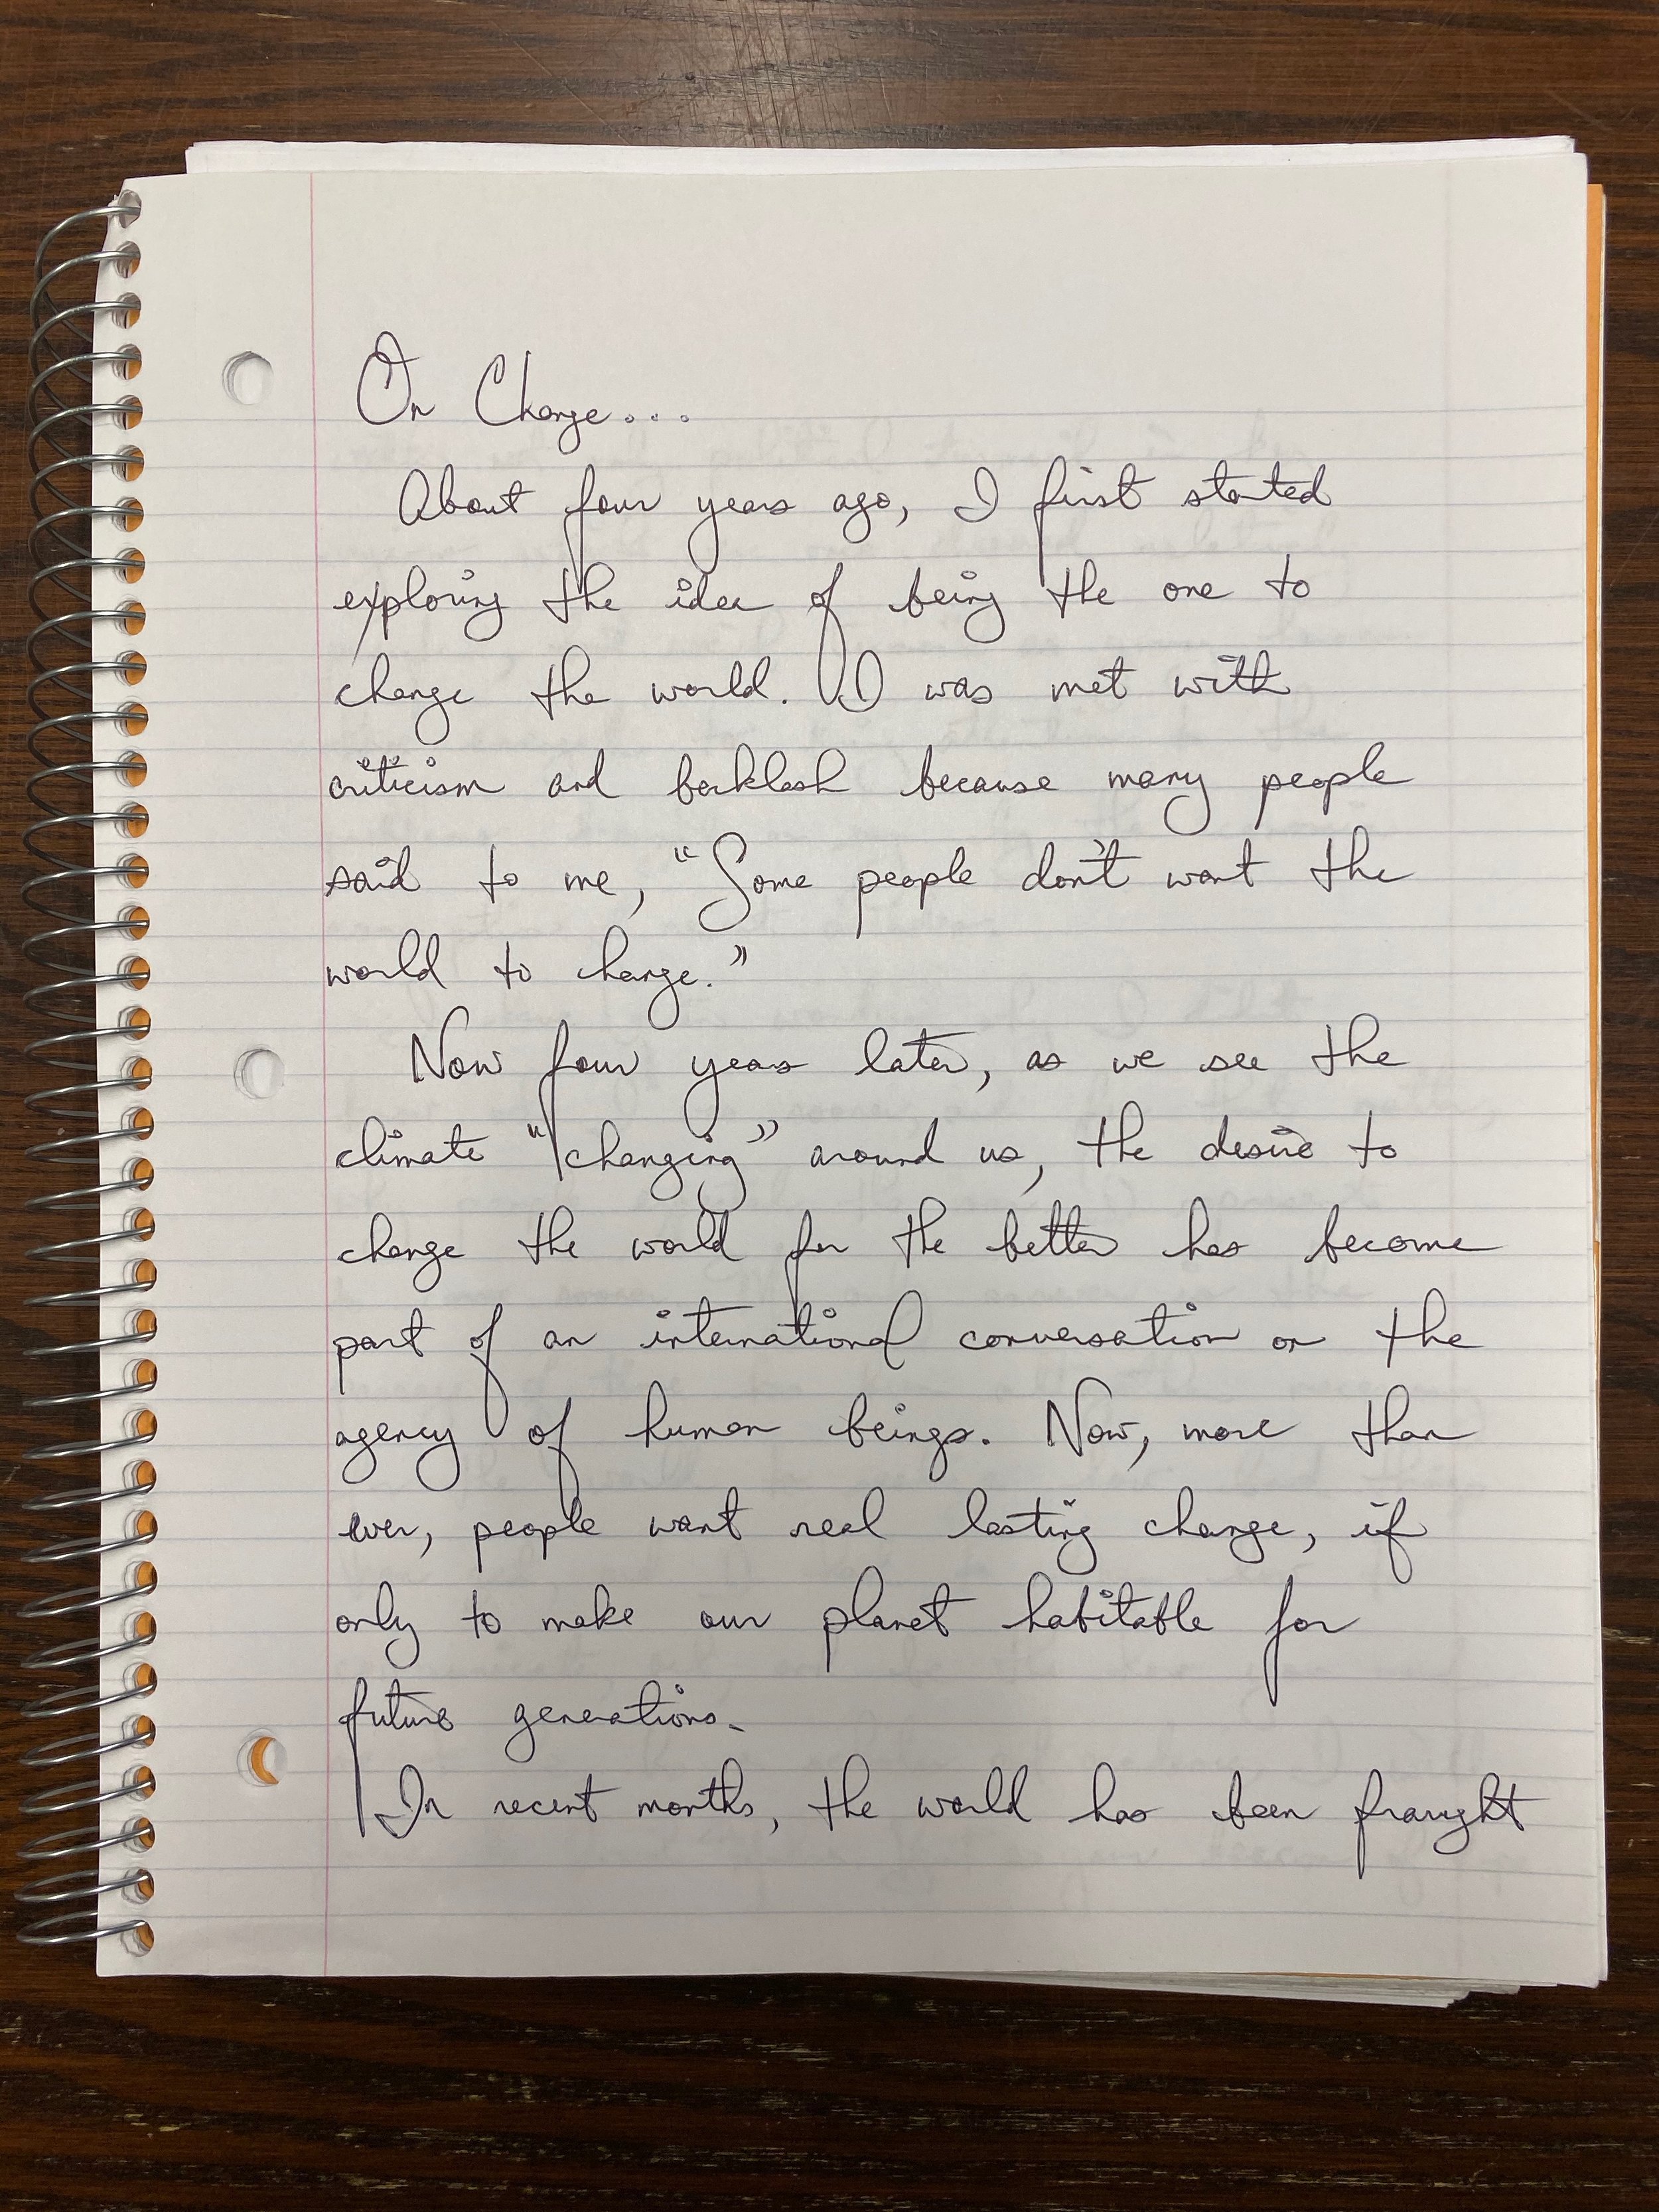 On Change...
About four years ago, I first started
exploring the idea of being the one to
change the world. I was met with
criticism and backlash because many people
said to me, "Some people don't want the
world to change."
Now four years later, as we see the
climate "changing" around us, the desire to
change the world for the better has become
part of an international conversation on the
agency of human beings. Now, more than
ever, people want real lasting change, if
only to make our planet habitable for
future generations.
In recent months, the world has been fraught